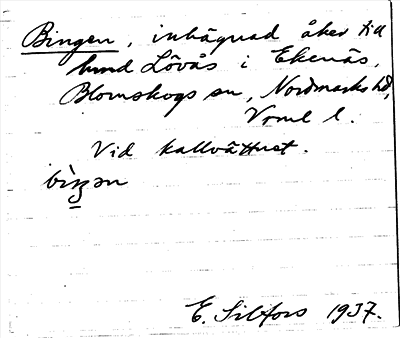 Bingen, inhägnad åker till
hmd Lövås i Ekenäs,
Blomskogs sn, Nordmarks hd,
Vrml l.
Vid kallvättnet.
bìŋən
E. Silfors 1937.